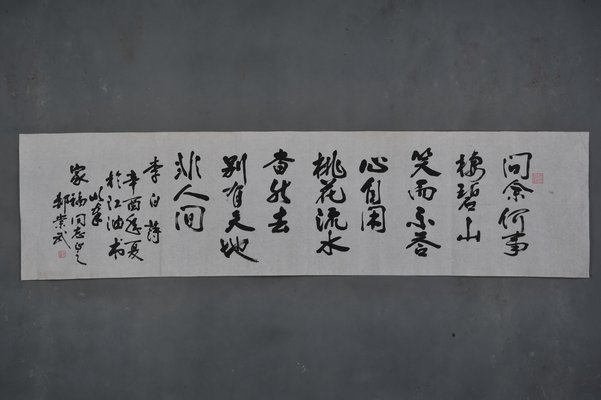 问余何事
棲碧山
笑而不答
心自闲
桃花流水
杳然去
别有天地
非人间
李白詩
辛酉年夏
於江油书
家福同志正之